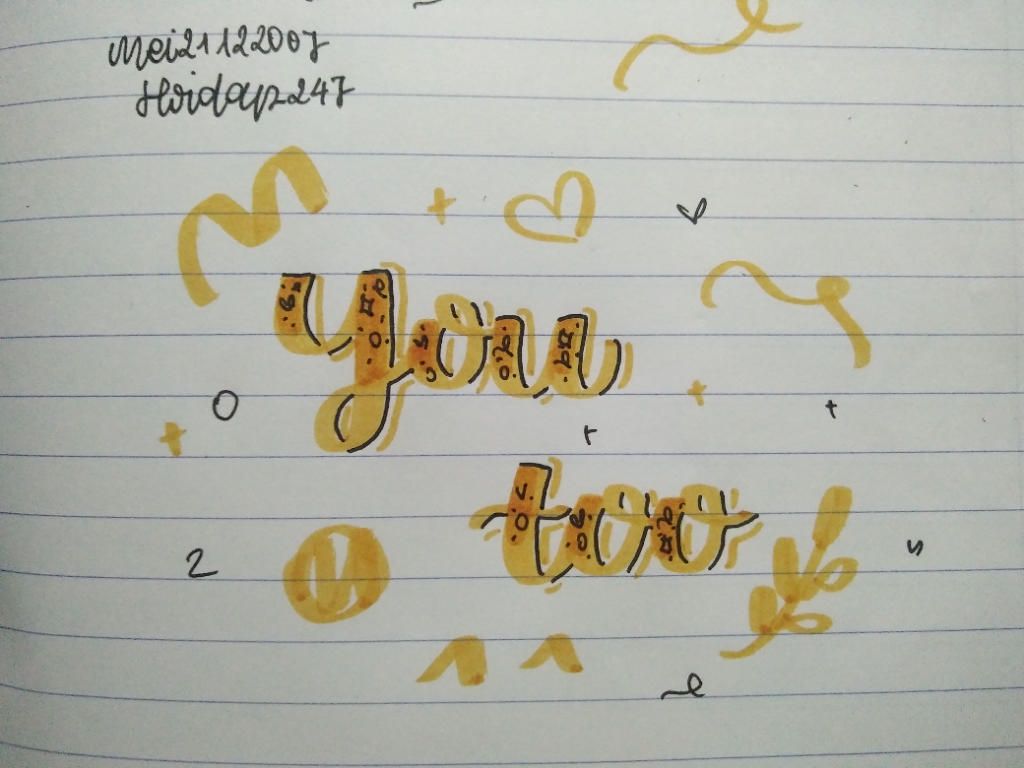 Mei21122007
Hoidap247
you
too